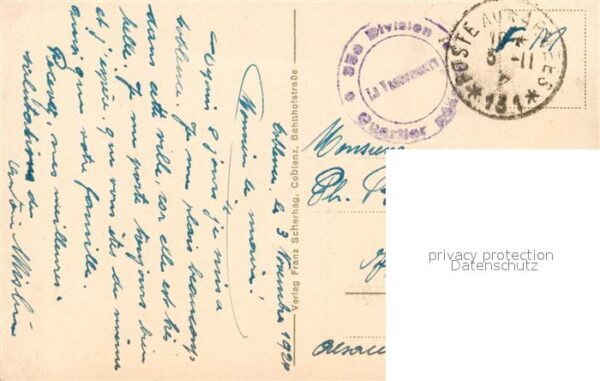 Coblence, le 3 Novembre 1920
Monsieur le maire!
Depuis 8 jours je suis à
Coblence. Je me plais beaucoup
dans cette ville, car elle est très
belle. Je me porte toujours bien
et j'espère que vous êtes de même
ainsi que votre famille.
Recevez, mes meilleures
salutations de
Verlag Franz Scherhag, Coblenz, Bahnhofstraße
Division
Quartier
Le Vaguemestre
POSTE AUX ARMEES
-11
*181*
F M
Monsieur
Ph.
Alsace
privacy protection
Datenschutz